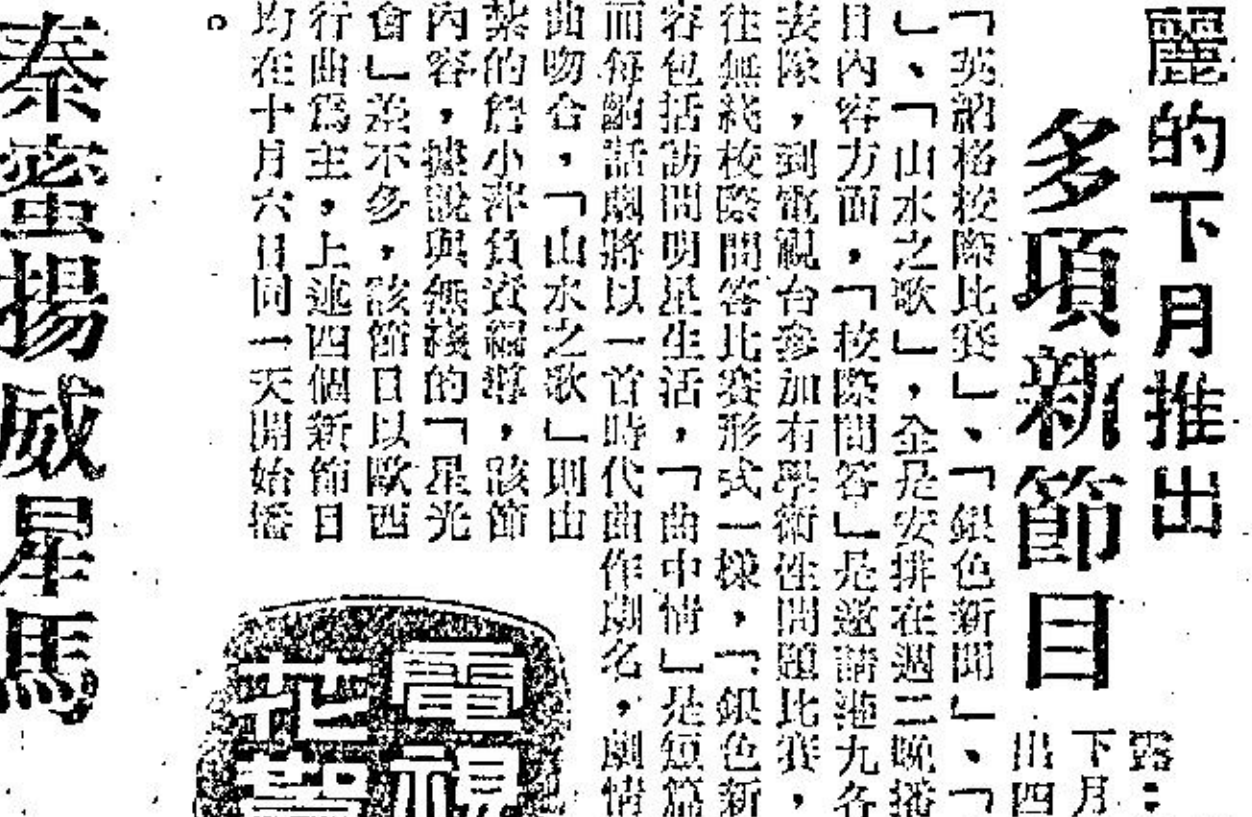 麗的下月推出
多項新節目
露：
下月
出四
「英納格校際比賽」、「銀色新聞」、「
」、「山水之歌」，全是安排在週二晚播
目內容方面，「校際問答」是邀請港九各
表隊，到電視台參加有學術性問題比賽，
往無綫校際問答比賽形式一樣，「銀色新
容包括訪問明星生活，「曲中情」是短篇
而每齣話劇將以一首時代曲作劇名，劇情
曲吻合，「山水之歌」則由
棻的詹小萍負責編導，該節
內容，據說與無綫的「星光
會」差不多，該節目以歐西
行曲爲主，上述四個新節目
均在十月六日同一天開始播
。
電視
花聲
秦蜜揚威星馬